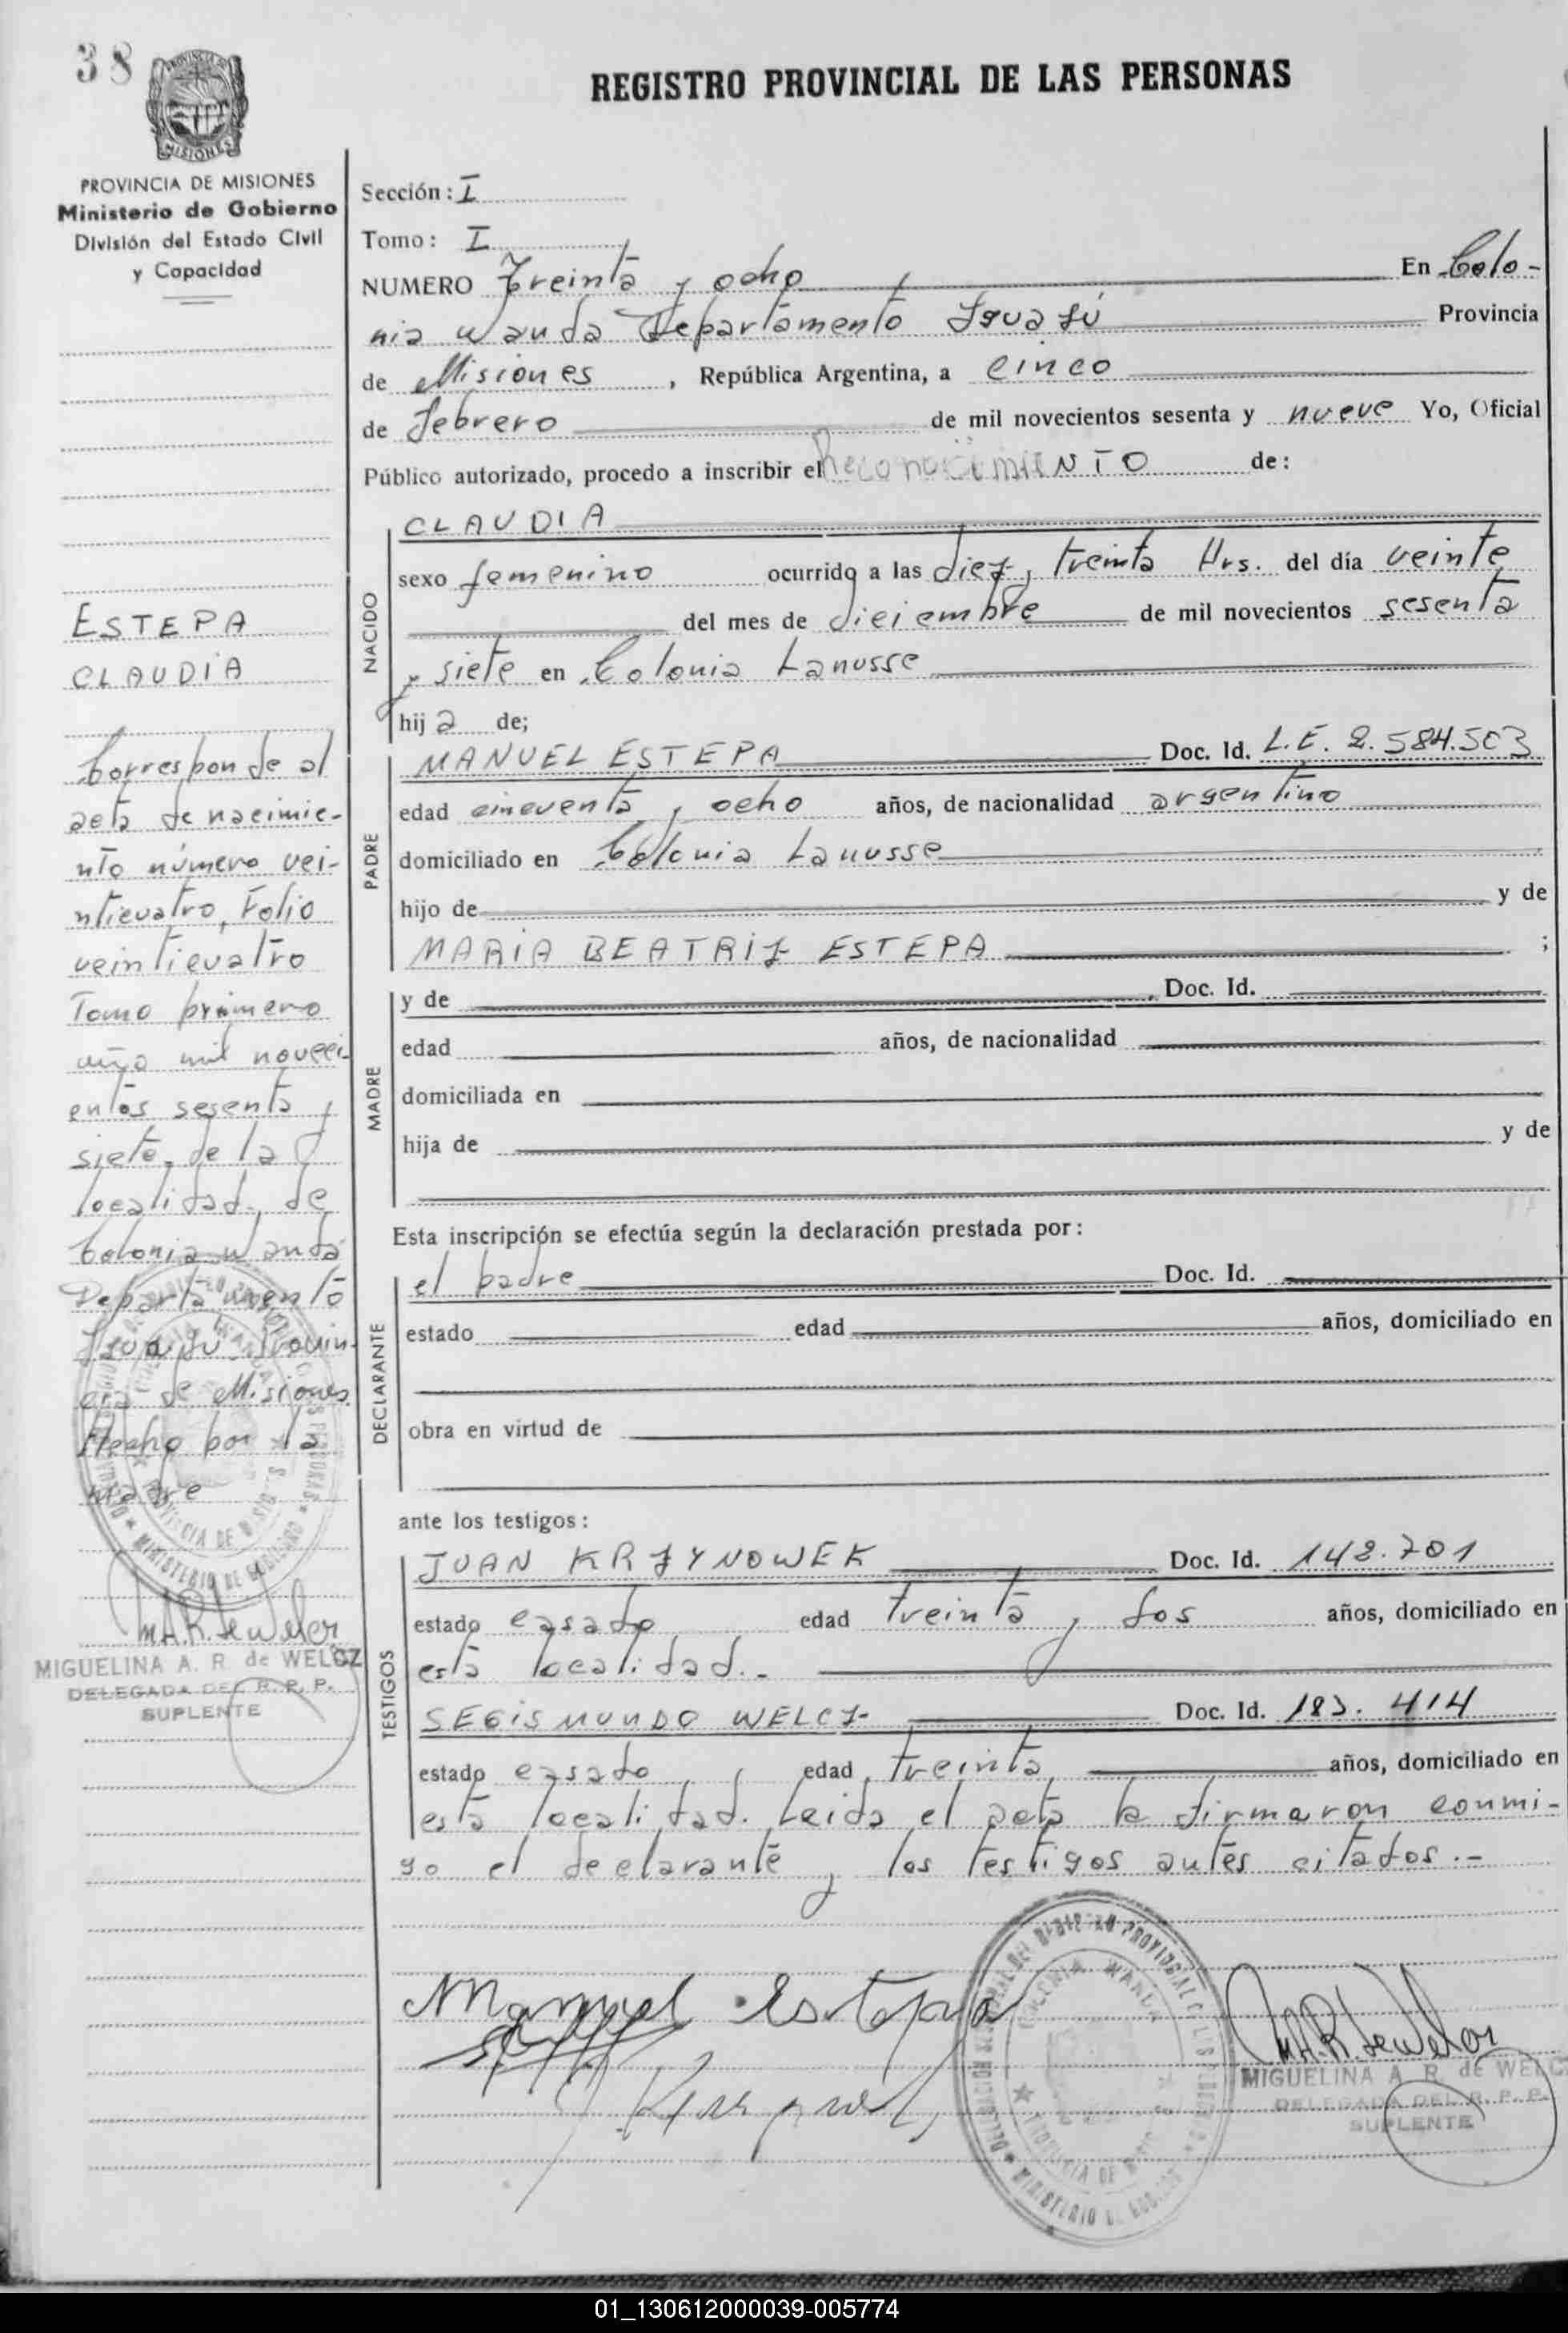 38
REGISTRO PROVINCIAL DE LAS PERSONAS
MISIONES
PROVINCIA DE MISIONES
Ministerio de Gobierno
División del Estado Civil
y Capacidad
Sección: I
Tomo: I
NUMERO Treinta y ocho En Colo-
nia Wanda Departamento Iguazú Provincia
de Misiones, República Argentina, a cinco
de febrero de mil novecientos sesenta y nueve Yo, Oficial
Público autorizado, procedo a inscribir el Reconocimiento de:
NACIDO
CLAUDIA
sexo femenino ocurrido a las diez, treinta Hrs. del día veinte
del mes de diciembre de mil novecientos sesenta
y siete en Colonia Lanusse
hija de;
PADRE
MANUEL ESTEPA Doc. Id. L.E. 2.584.503
edad cincuenta y ocho años, de nacionalidad argentino
domiciliado en Colonia Lanusse
hijo de y de
MARIA BEATRIZ ESTEPA ;
MADRE
y de Doc. Id.
edad años, de nacionalidad
domiciliada en
hija de y de
Esta inscripción se efectúa según la declaración prestada por:
DECLARANTE
el padre Doc. Id.
estado edad años, domiciliado en
obra en virtud de
ante los testigos:
TESTIGOS
JUAN KRZYNOWEK Doc. Id. 148.701
estado casado edad treinta y dos años, domiciliado en
esta localidad.-
SEGISMUNDO WELCZ Doc. Id. 183.414
estado casado edad treinta años, domiciliado en
esta localidad. Leida el acta la firmaron conmi-
go el declarante y los testigos antes citados.-
ESTEPA
CLAUDIA
Corresponde al
acta de nacimie-
nto número vei-
nticuatro, Folio
veinticuatro
Tomo primero
año mil noveci-
entos sesenta y
siete, de la
localidad de
Colonia Wanda
Departamento
Iguazú Provin-
cia de Misiones
Hecho por la
Madre
M.A.R. de Welcz
MIGUELINA A. R. de WELCZ
DELEGADA DEL R. P. P.
SUPLENTE
Manuel Estepa
M.A.R. de Welcz
MIGUELINA A. R. de WELC
DELEGADA DEL R. P. P.
SUPLENTE
01_130612000039-005774